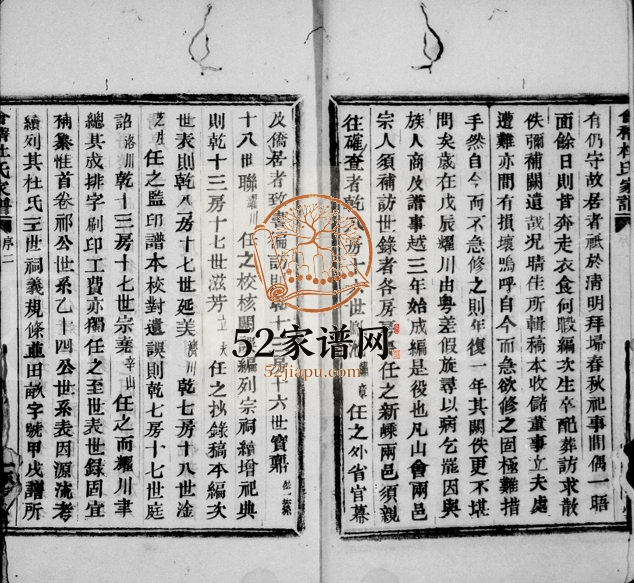 有仍守故居者祇於清明拜埽春秋祀事間偶一晤
面餘日則皆奔走衣食何暇編次生卒配葬訪求散
佚彌補闕遺哉況晴佳所輯稿本收儲董事立夫處
遭難亦間有損壞嗚呼自今而急欲修之固極難措
手然自今而不急修之則年復一年其闕佚更不堪
問矣歲在戊辰耀川由粵差假旋尋以病乞罷因與
族人商及譜事越三年始成編是役也凡山會兩邑
宗人須補訪世錄者各房
任之新嵊兩邑須親
往確查者乾
世
任之外省官幕
會稽杜氏家譜
序二
及僑居者致書徧訪則乾十
十六世寶
十八世聯
川
任之校核闕
編列宗祠續增祀典
則乾十三房十七世滋芳
立夫
任之抄錄稿本編次
世表則乾八房十七世延美
川
乾七房十八世淦
任之監印譜本校對遺誤則乾七房十七世庭
詔
洛川
乾十三房十七世宗堯
辛山
任之而耀川聿
總其成排字刷印工費亦獨任之至世表世錄固宜
補纂惟首卷祁公世系乙十四公世系表因源流考
續列其杜氏三世祠義規條並田畝字號甲戌譜所
52家谱网
52jiapu.com